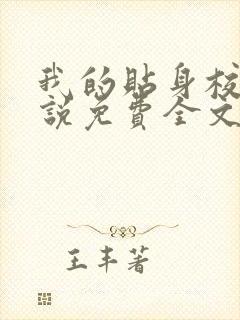 我的贴身校
說免費全文
王丰著